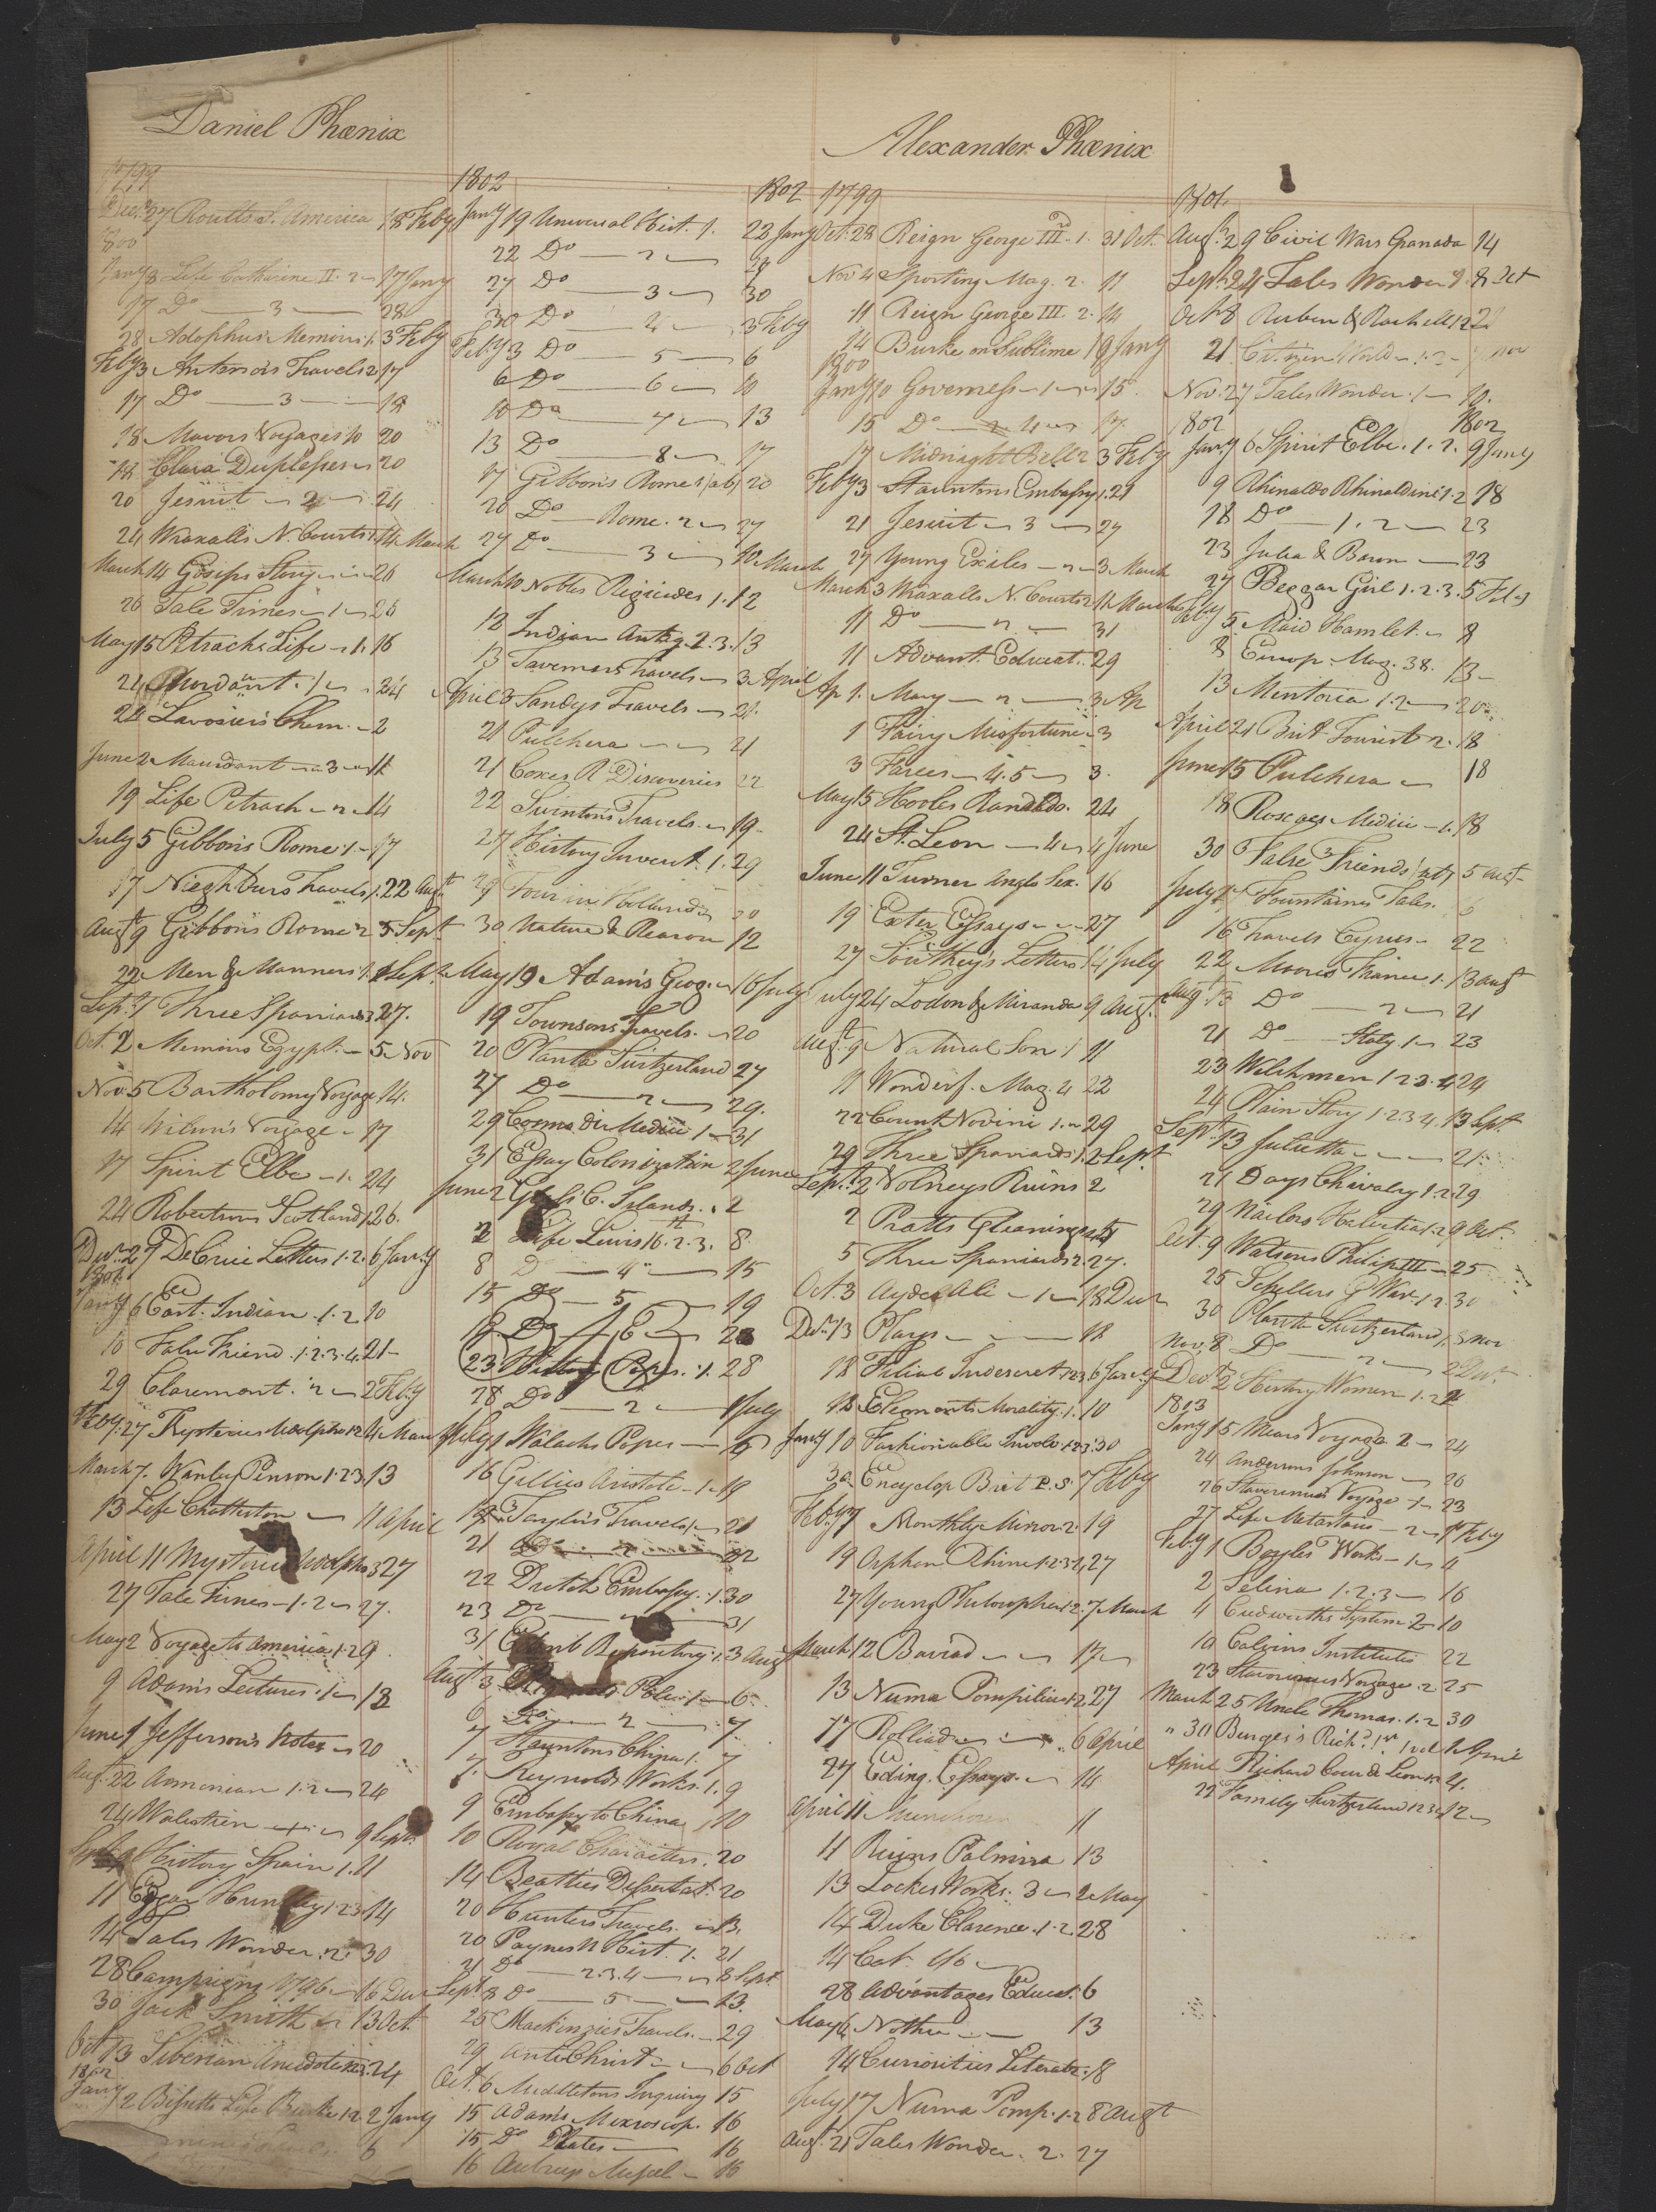 Daniel Phœnix
1799
Decr. 27 Routts S. America 18 Feby
1800
Jany 8 Life Catharine II. 2 17 Jany
17 Do 3 28
28 Adolphus Memoirs 1. 3 Feby
Feby 3 Antenors Travels 2 17
17 Do 3 18
18 Mavors Voyages 10 20
Clara Duplesses 20
20 Jesuit 2 24
24 Wraxalls N. Courts 1. 14 March
March 14 Gosips Story 26
26 Tale Times 1 28
May 15 Petrachs Life 1. 16
24 Mordant 1 24
24 Lavosiers Chem. 2
June 2 Maurdant 3 12
19 Life Petrach 2 14
July 5 Gibbons Rome 1. 17
17 Nieghburs Travels 1. 22 Augt
Augt 9 Gibbons Rome 2 5 Sept
22 Men & Manners 1. 2 Sept.
Sept. 7 Three Spaniards 3 27.
Oct. 2 Memoirs Egypt. 5 Nov
Nov. 5 Bartholomy Voyage 14.
14 Wilson's Voyage 17
17 Spirit Elbe 1. 24
24 Robertsons Scotland 1. 26.
Decr. 27 DeCrui Letters 1.2. 6 Jany
1801
Jany 6 East. Indian 1.2 10
10 False Friend .1.2.3.4. 21
29 Claremont. 2 2 Feby
Feby. 27 Mysteries Udolpho 1.2 4 March
March 7. Wanley Penson 1.2.3 13
13 Life Chatterton 11 April
April 11 Mysteries Udolpho 3 27
27 Tale Times 1.2 27.
May 2 Voyage to America 1.2 9
9 Adam's Lectures 1 12
June 1 Jefferson's Notes 20
Aug. 22 Armenian 1.2 24
24 Walstien 9 Sept.
Sept 9 History Spain 1. 11
11 Edgar Huntley 1.2.3 14
14 Tales Wonder. 2. 30
28 Campaigns 1796 16 Decr
30 Jack Smith 13 Oct.
Oct 13 Siberian Anecdotes 24
1802
Jany 2 Bissetts Life Burke 1.2. 2 Jany
6
1802 1802
Jany 19 Universal Hist. 1. 22 Jany
22 Do 2 27
27 Do 3 30
30 Do 4 3 Feby
Feby 3 Do 5 6
6 Do 6 10
10 Do 7 13
13 Do 8 17
17 Gibbons Rome 1 20
20 Do Rome. 2 27
27 Do 3 10 March
March 10 Nobles Rigicides 1. 12
12 Indian Antiq. 2.3. 13
13 Taverners Travels 3 April
April 3 Sandys Travels 21.
21 Pulchera 21
21 Coxes R. Discoveries 22
22 Swintons Travels. 19
27 History Invent. 1. 29
29 Tour in Holland 30
30 Nature & Reason 12
May 19 Adam's Geog. 16 July
19 Townsons Travels. 20
20 Planta Switzerland 27
27 Do 2 29.
29 Cosmo di Medici 1 31
31 Essay Colonization 2 June
June 2 C. Islands. 2
2 Life Lewis 16th. 2.3. 8
8 Do 4 15
15 Do 5 19
19 Do 6 23
23 History Popes. 1. 28
28 Do 2 1 July
July 1 Walachs Popes
16 Gillies Aristotle 1. 19
Taylors Travels 1 21
21 Do 2 22
22 Dutch Embassy. 1. 30
23 Do 31
31 Repository. 1. 3 Aug
Augt 3 1 6.
6 Do 2 7.
7 Stauntons China 1. 7
7. Reynolds Works. 1. 9
9 Embassy to China 10
10 Royal Characters. 20
14 Beatties Dissertat. 20
20 Hunters Travels. 13.
20 Paynes U Hist. 1. 21
21 Do 2.3.4 8 Sept
Sept 8 Do 5 13.
25 Mackinzies Travels. 29
29 Anti Christ 6 Oct
Oct. 6 Middletons Inquiry 15
15 Adams Microscop. 16
15 Do Plates 16
16 16
Alexander Phœnix
1799
Oct. 28 Reign George IIId. 1. 31 Oct.
Nov 4 Sporting Mag. 2. 11
11 Reign George III. 2. 14
14 Burke on Sublime 9 Jany
1800
Jany 10 Governess 1 15
15 Do 4 17.
17 Midnight Bell 2 3 Feby
Feby 3 Stauntons Embassy 1. 21
21 Jesuit 3 27
27 Young Exiles 2 3 March
March 3 Wraxalls N. Courts 2 11 March
11 Do 2 31
11 Advant. Educat. 29
Ap 1. Mary 2 3 Ap
1 Fairy Misfortune 3
3 Farces 4.5 3.
May 15 Hooles Ranaldo. 24
24 St. Leon 4 4 June
June 11 Turner Anglo Sex. 16
19 Exter Essays 27
27 Southey's Letters 14 July
July 24 Lodon & Miranda 9 Augt.
Augt. 9 Natural Son 1 11
11 Wonderf. Mag. 4 22
22 Count Novini 1. 29
29 Three Spaniards 1. 2 Sept.
Sept. 2 Volneys Ruins 2
2 Pratts Gleanings
5 Three Spaniards 2. 27.
Oct. 3 Ayder Ali 1 18 Decr
Decr. 13 Plays 18
18 Filial Indescret. 1.2.3. 6 Jany
18 Elements Morality. 1. 10
Jany 10 Fashionable Involv. 1.2.3. 30
30 Encyclop Brit P.S. 7 Feby
Feby 7 Monthly Mirror. 2. 19
19 Orphan Rhine 1.2.3.4 27
27 Young Philosopher 1.2. 7 March
March 12 Barrad 17
13 Numa Pompilius 1.2 27
17 Rolliad 6 April
27 Eding. Essays. 14
April 11 11
11 Ruins Palmira 13
13 Lockes Works. 3 2 May
14 Duke Clarence. 1.2 28
14 Cat.
28 Advantages Educat. 6
May 6 13
14 Curiosities Literatr. 18
July 17 Numa Pomp. 1.2 8 Augt
Augt. 21 Tales Wonder. 2. 27
1801.
Augt. 29 Civil Wars Granada 14
Sept. 24 Tales Wonder 2. 8 Oct
Oct. 8 Ruben & Rachell 1.2 21
21 Citizen World 1.2 Nov
Nov. 27 Tales Wonder. 1 10.
1802 1802
Jany 6 Spirit Elbe. 1.2. 9 Jany
9 Rhinaldo Rhinaldini 1.2 18
18 Do 1.2 23
23 Julia & Baron 23
27 Beggar Girl 1.2.3. 5 Feby
Feby 5 Maid Hamlet 8
8 Europ. Mag. 38. 13
13 Mentoria 1.2 20
April 21 Brit Tourist 2. 18
June 15 Pulchera 18
18 Roscoes Medici 1. 18
30 False Friends 5 Augt
July Fountaines Tales. 6
16 Travels Cyrus 22
22 Moores France 1. 13 Augt
Augt. 13 Do 2 21
21 Do Italy 1 23
23 Welchmen 1.2.3.4 24
24 Plain Story 1.2.3.4. 13 Sept.
Sept. 13 Julietta 21
21 Days Chivalry 1.2 29
29 Nailors Helvetia 1.2. 9 Oct.
Oct. 9 Watsons Philip III 25
25 Schellers G War. 1.2. 30
30 Planta Switzerland 1. 8 Nov
Nov. 8 Do 2 2 Decr.
Decr 2 History Women 1.2
1803
Jany 15 Mears Voyage 2 24
24 Andersons Johnson 26
26 Stavorinus Voyage 1 23
27 Life Metastasio 2 1 Feby
Feby 1 Boyles Works 1 4
2 Selina 1.2.3 16
4 Cudworths System. 2 10
10 Calvins Institute 22
23 Stavorinus Voyage. 2 25
March 25 Uncle Thomas. 1.2 30
" 30 Burges's Richd. 1st 1 vol 1 April
April Richard Cour de Leon 1.2. 4.
22 Family Switzerland 1.2.3.4 12